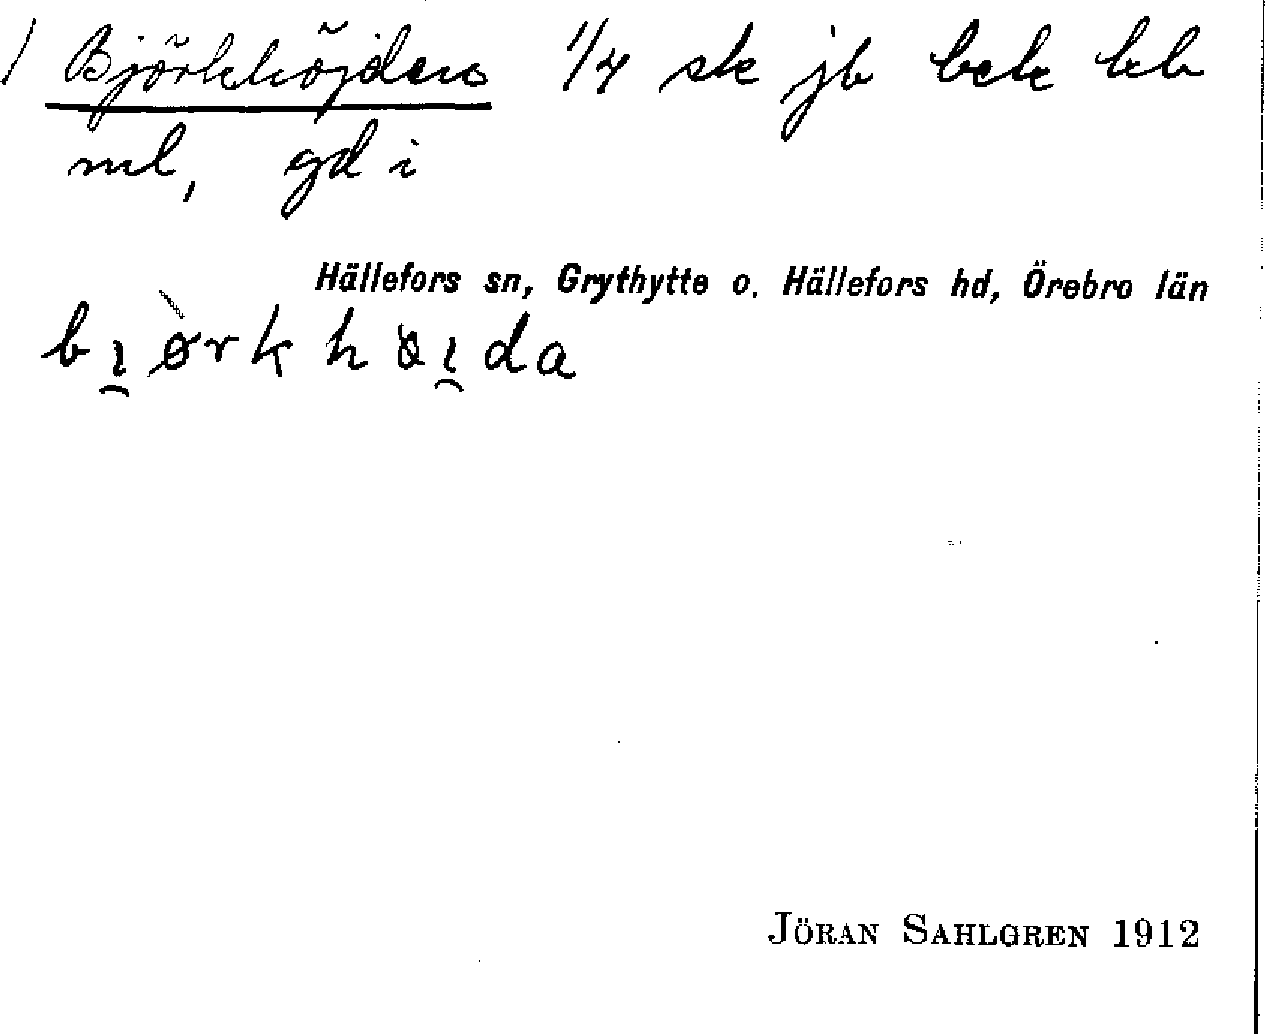 / Björkhöjden 1/4 sk jb bck kb
ml, gd i
Hällefors sn, Grythytte o. Hällefors hd, Örebro län
bı̯ørkhöı̯da
JÖRAN SAHLGREN 1912